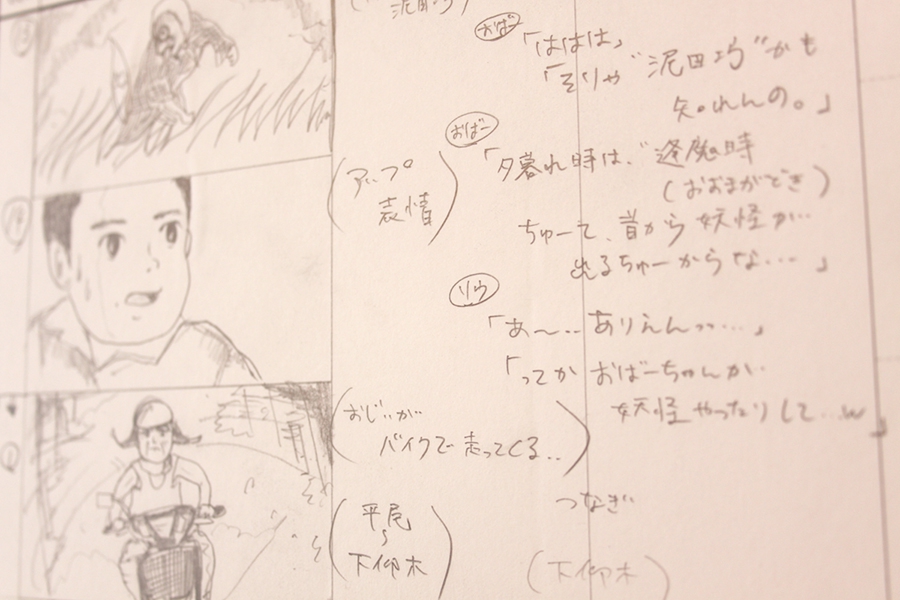 おばー
「ははは」
「そりゃ"泥田坊"かも
知れんの。」
おばー
(アップ
表情)
「夕暮れ時は、"逢魔時
(おおまがどき)
ちゅーて、昔から妖怪が…
出るちゅーからな…」
リウ
「あ〜‥ありえんッ…」
「ってか おばーちゃんが
妖怪やったりして…w」
(おじぃが
バイクで走ってくる‥)
つなぎ
(平尾
〜
下仰木)
(下仰木)